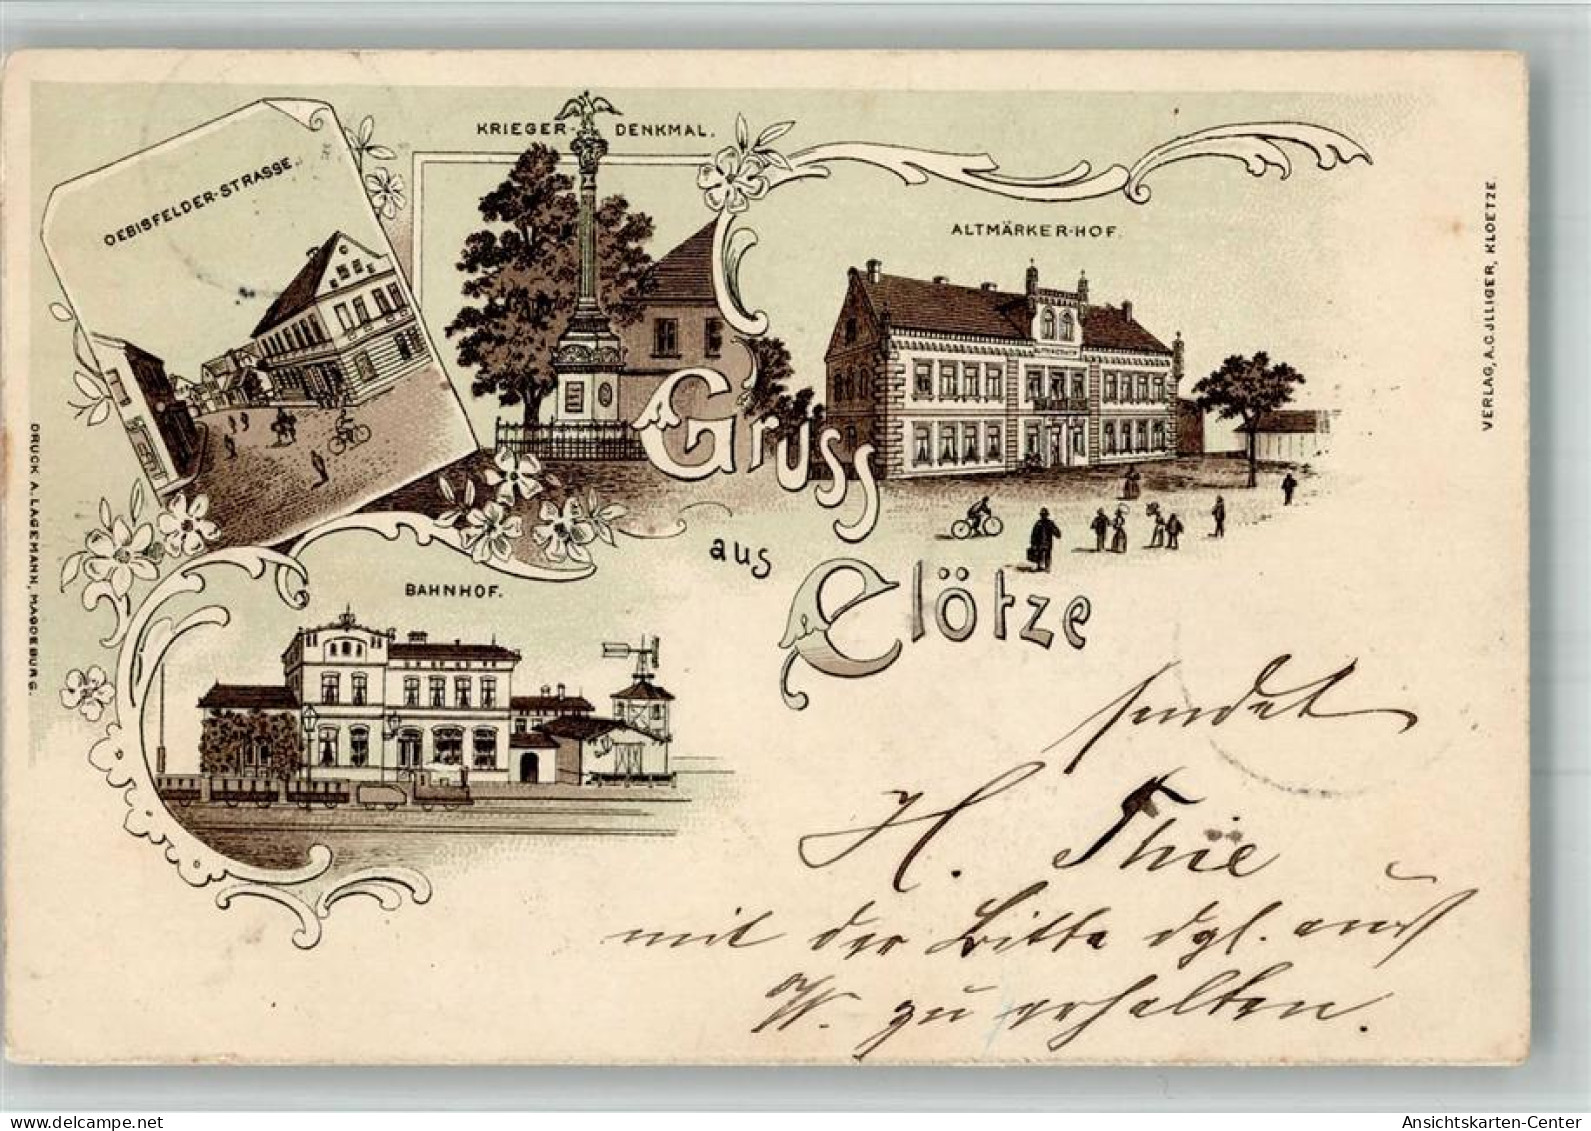 KRIEGER-DENKMAL.
OEBISFELDER-STRASSE
ALTMÄRKER-HOF.
VERLAG, A.C. JLLIGER, KLOETZE.
DRUCK A. LAGEMANN, MAGDEBURG.
Gruss
aus
Clötze
BAHNHOF.
sendet
H. Thie
mit der Bitte dgl. aus
W. zu erhalten.
Ansichtskarten-Center
www.delcampe.net